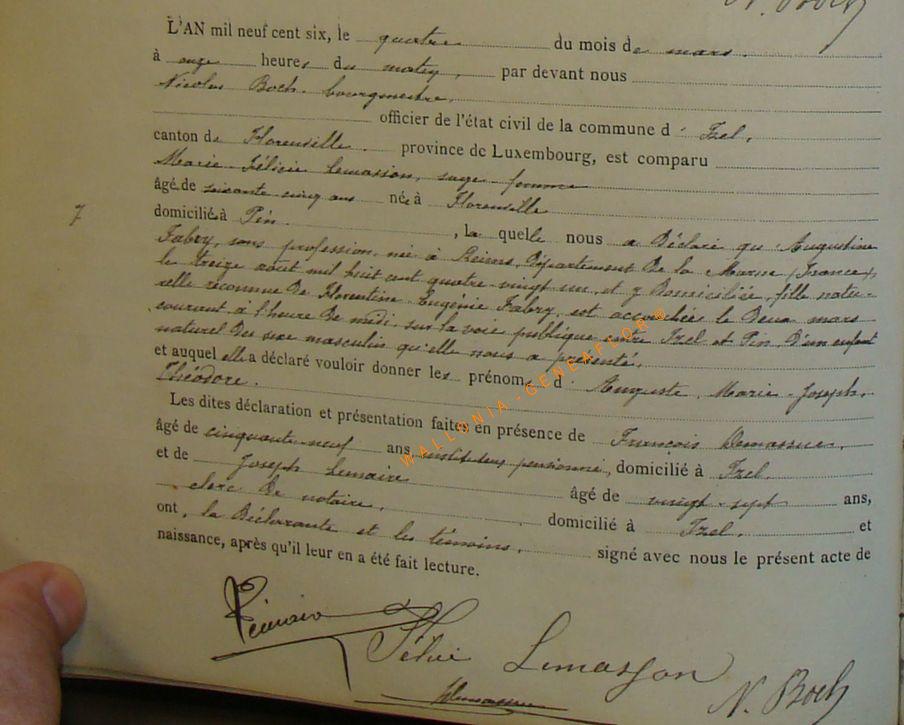 N. Boch
L'AN mil neuf cent six, le quatre du mois de mars.
à onze heures du matin, par devant nous
Nicolas Boch, bourgmestre,
officier de l'état civil de la commune d'Izel,
canton de Florenville province de Luxembourg, est comparu
Marie Félicie Lemasson, sage femme
âgée de soixante cinq ans née à Florenville
domiciliée à Pin, laquelle nous a déclaré qu'Augustine
Fabry, sans profession, née à Reims, Département de la Marne (France),
le treize août mil huit cent quatre vingt un, et y domiciliée, fille natu-
relle reconnue de Florentine Eugénie Fabry, est accouchée le deux mars
courant à l'heure de midi, sur la voie publique entre Izel et Pin, d'un enfant
naturel du sexe masculin qu'elle nous a présenté,
et auquel elle a déclaré vouloir donner les prénoms d'Auguste, Marie-Joseph,
Théodore.
Les dites déclaration et présentation faites en présence de François
âgé de cinquante-neuf ans, instituteur pensionné, domicilié à Izel,
et de Joseph Lemaire âgé de vingt-sept ans,
clerc de notaire, domicilié à Izel, et
ont, la Déclarante et les témoins, signé avec nous le présent acte de
naissance, après qu'il leur en a été fait lecture.
7
WALLONIA-GENEAFLOR®
Lemasson
N. Boch